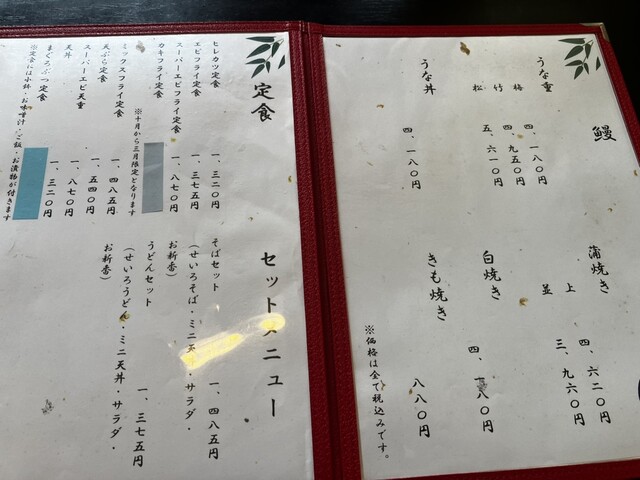 鰻
うな重
梅 四、一八〇円
竹 四、九五〇円
松 五、六一〇円
うな丼 四、一八〇円
蒲焼き
上 四、六二〇円
並 三、九六〇円
白焼き 四、一八〇円
きも焼き 八八〇円
※価格は全て税込みです。
定食
ヒレカツ定食 一、三二〇円
エビフライ定食 一、三七五円
スーパーエビフライ定食 一、八七〇円
カキフライ定食
※十月から三月限定となります
ミックスフライ定食 一、四八五円
天ぷら定食 一、五四〇円
スーパーエビ天重 一、八七〇円
天丼 一、三二〇円
まぐろぶつ定食
※定食には小鉢・お味噌汁・ご飯・お漬物が付きます
セットメニュー
そばセット 一、四八五円
（せいろそば・ミニ天丼・サラダ・
お新香）
うどんセット 一、三七五円
（せいろうどん・ミニ天丼・サラダ・
お新香）